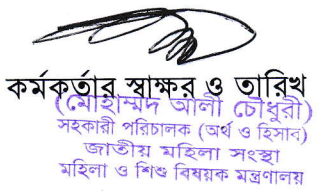 কর্মকর্তার স্বাক্ষর ও তারিখ
(মোহাম্মদ আলী চৌধুরী)
সহকারী পরিচালক (অর্থ ও হিসাব)
জাতীয় মহিলা সংস্থা
মহিলা ও শিশু বিষয়ক মন্ত্রণালয়